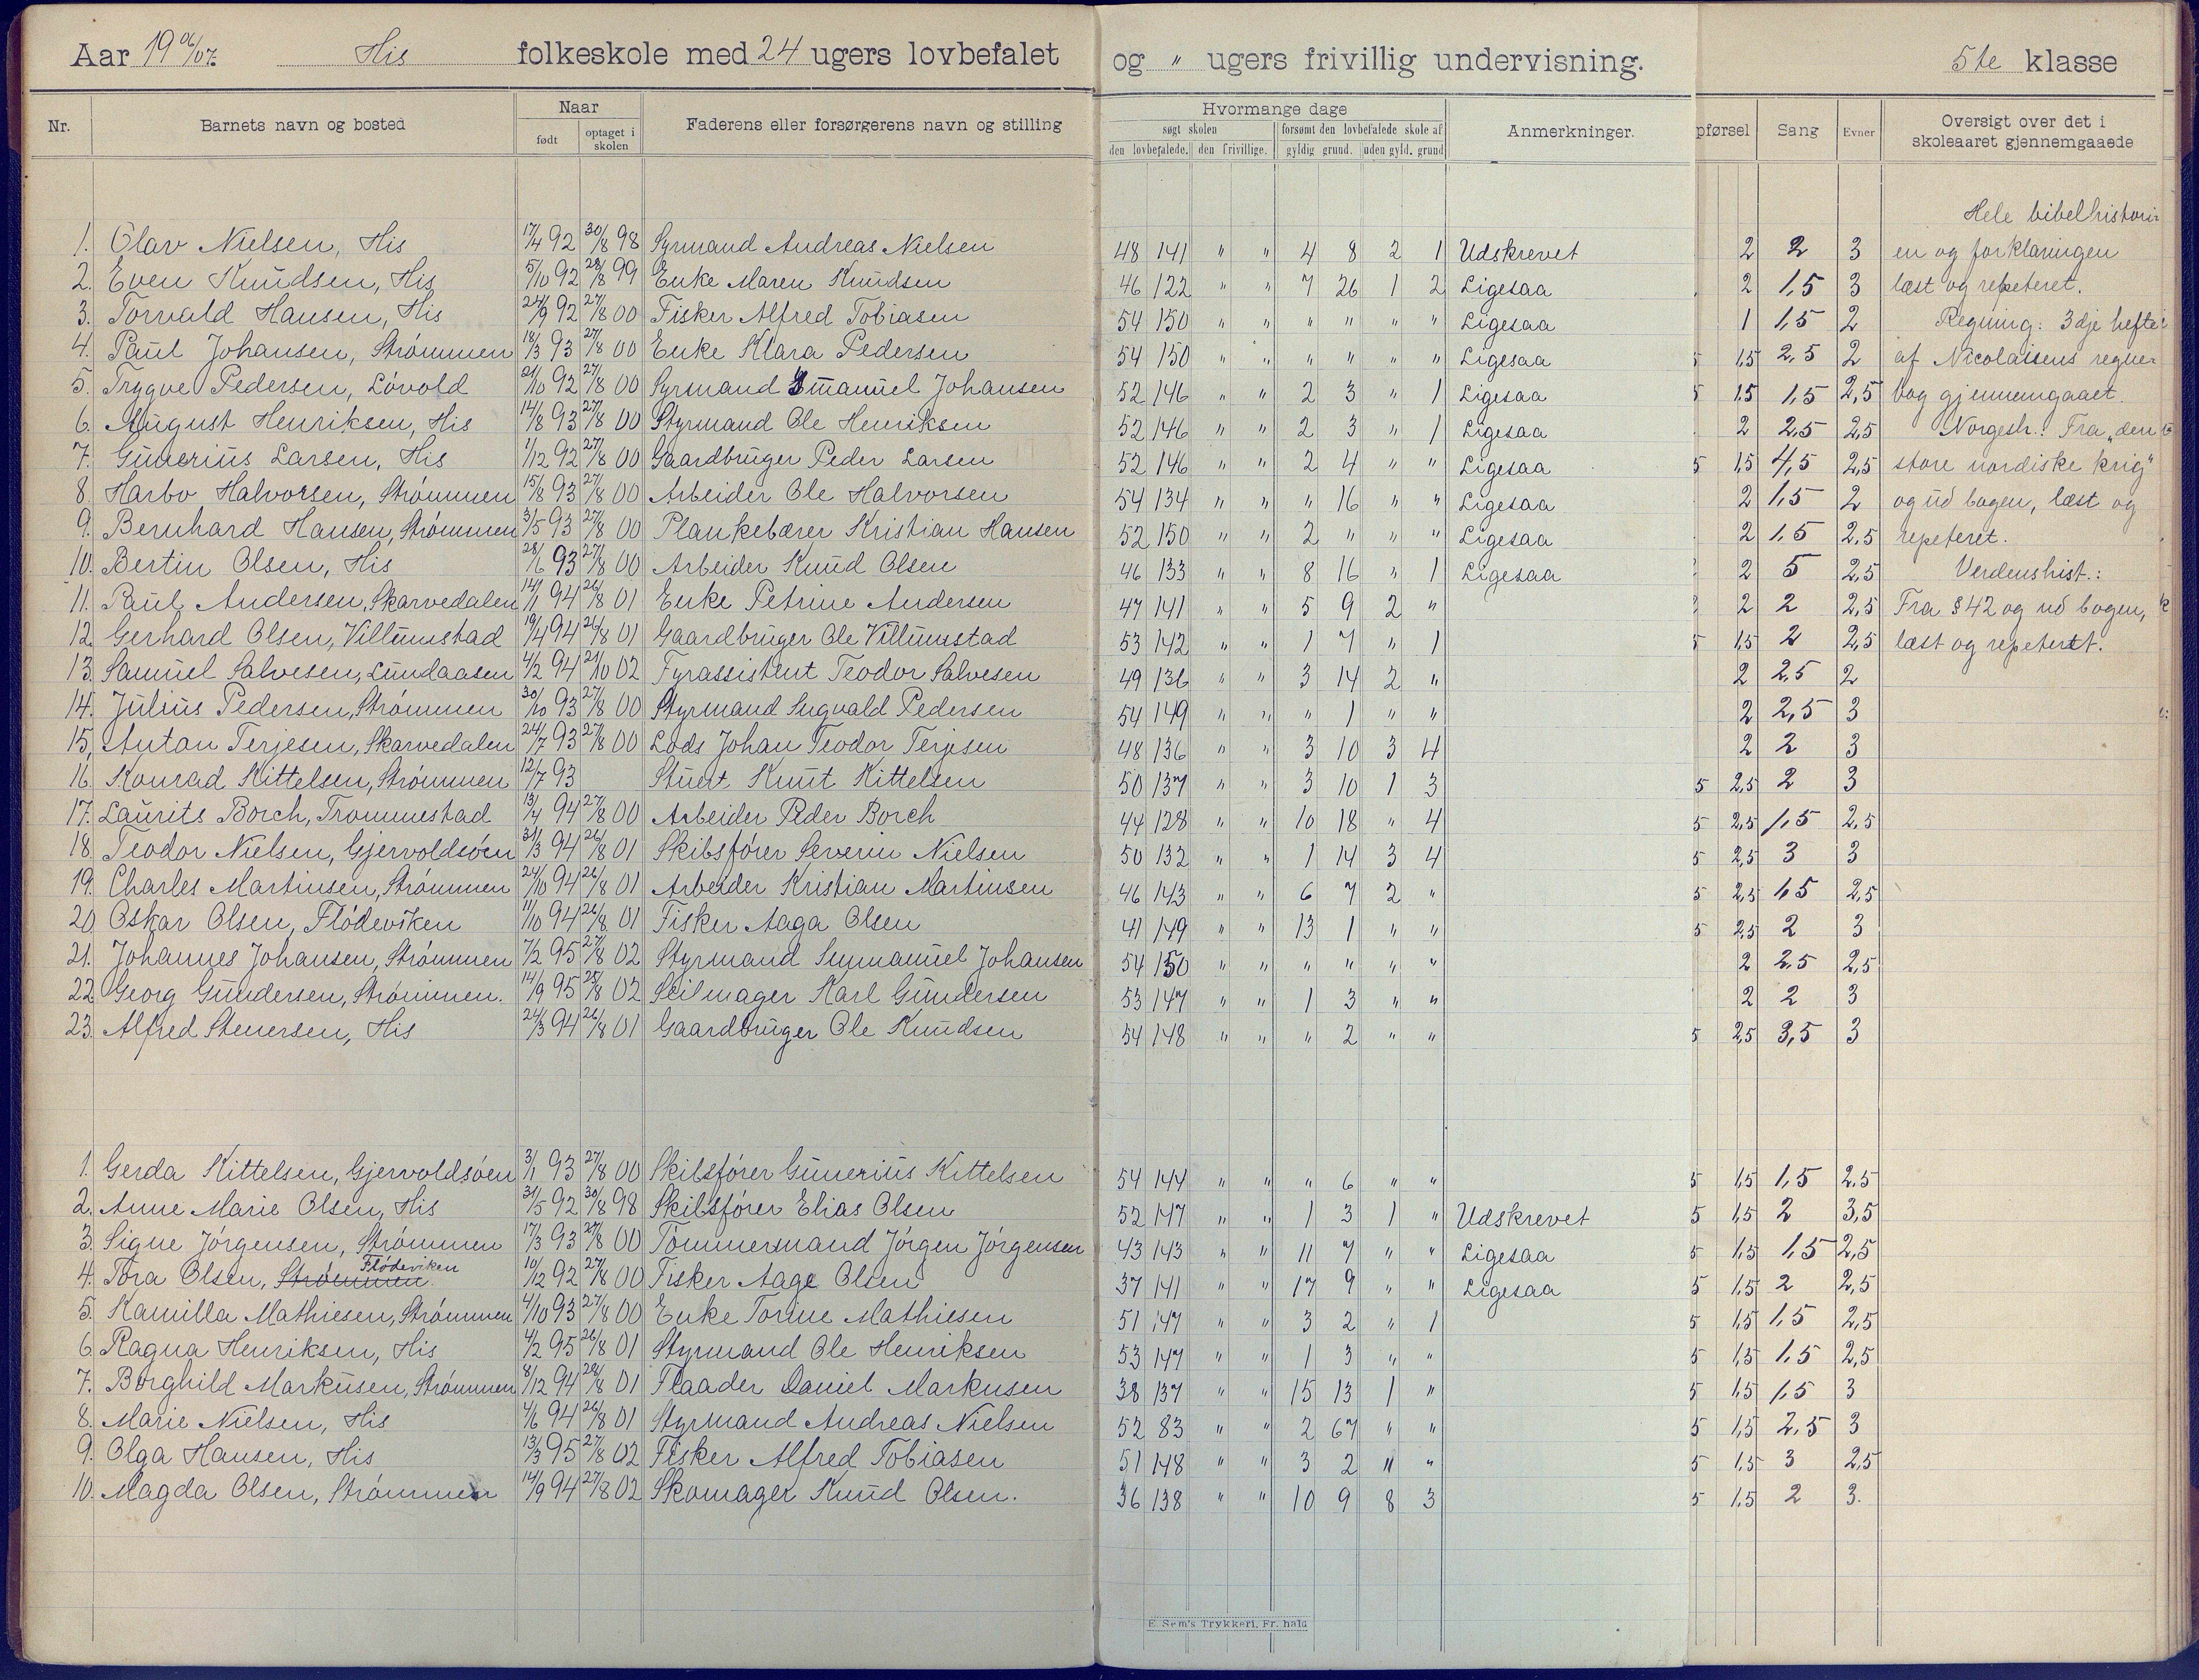 Aar 19 06/07. His folkeskole med 24 ugers lovbefalet og " ugers frivillig undervisning. 5te klasse
Nr. Barnets navn og bosted Naar født optaget i skolen Faderens eller forsørgerens navn og stilling Hvormange dage søgt skolen den lovbefalede. den frivillige. forsømt den lovbefalede skole af gyldig grund. uden gyld. grund Anmerkninger. pførsel Sang Evner Oversigt over det i skoleaaret gjennemgaaede
Hele bibelhistori-
1. Olav Nielsen, His 17/4 92 30/8 98 Syrmand Andreas Nielsen 48 141 " " 4 8 2 1 Udskrevet 2 2 3 en og forklaringen
2. Even Knudsen, His 5/10 92 28/8 99 Enke Maren Knudsen 46 122 " " 7 26 1 2 Ligesaa 2 1,5 3 læst og repeteret.
3. Torvald Hansen, His 24/9 92 27/8 00 Fisker Alfred Tobiasen 54 150 " " " " " " Ligesaa 1 1,5 2 Regning: 3dje hefte
4. Paul Johansen, Strømmen 18/3 93 27/8 00 Enke Klara Pedersen 54 150 " " " " " " Ligesaa 5 1,5 2,5 2 af Nicolaisens regne-
5. Trygve Pedersen, Løvold 21/10 92 27/8 00 Syrmand Emanuel Johansen 52 146 " " 2 3 " 1 Ligesaa 5 1,5 1,5 2,5 bog gjennemgaaet.
6. August Henriksen, His 14/8 93 27/8 00 Styrmand Ole Henriksen 52 146 " " 2 3 " 1 Ligesaa 2 2,5 2,5 Norgesh.: Fra „den
7. Gunerius Larsen, His 1/12 92 27/8 00 Gaardbruger Peder Larsen 52 146 " " 2 4 " " Ligesaa 5 1,5 4,5 2,5 store nordiske krig"
8. Harbo Halvorsen, Strømmen 15/8 93 27/8 00 Arbeider Ole Halvorsen 54 134 " " " 16 " " Ligesaa 2 1,5 2 og ud bogen, læst og
9. Bernhard Hansen, Strømmen 31/5 93 27/8 00 Plankebærer Kristian Hansen 52 150 " " 2 " " " Ligesaa 2 1,5 2,5 repeteret.
10. Bertin Olsen, His 28/6 93 27/8 00 Arbeider Knud Olsen 46 133 " " 8 16 " 1 Ligesaa 2 5 2,5 Verdenshist.:
11. Paul Andersen, Skarvedalen 14/1 94 26/8 01 Enke Petrine Andersen 47 141 " " 5 9 2 " 2 2 2,5 Fra § 42 og ud bogen,
12. Gerhard Olsen, Villumstad 19/4 94 26/8 01 Gaardbruger Ole Villumstad 53 142 " " 1 7 " 1 5 1,5 2 2,5 læst og repeteret.
13. Samuel Salvesen, Lundaasen 4/2 94 21/10 02 Fyrassistent Teodor Salvesen 49 136 " " 3 14 2 " 2 2,5 2
14. Julius Pedersen, Strømmen 30/10 93 27/8 00 Styrmand Sigvald Pedersen 54 149 " " " 1 " " 2 2,5 3
15, Antan Terjesen, Skarvedalen 24/7 93 27/8 00 Lods Johan Teodor Terjesen 48 136 " " 3 10 3 4 2 2 3
16. Konrad Kittelsen, Strømmen 12/7 93 Stuert Knut Kittelsen 50 137 " " 3 10 1 3 5 2,5 2 3
17. Laurits Borch, Trommestad 13/4 94 27/8 00 Arbeider Peder Borch 44 128 " " 10 18 " 4 5 2,5 1,5 2,5
18. Teodor Nielsen, Gjervoldsøen 31/3 94 26/8 01 Skibsfører Severin Nielsen 50 132 " " 1 14 3 4 5 2,5 3 3
19. Charles Martinsen, Strømmen 24/10 94 26/8 01 Arbeider Kristian Martinsen 46 143 " " 6 7 2 " 5 2,5 1,5 2,5
20. Oskar Olsen, Flødeviken 11/10 94 26/8 01 Fisker Aaga Olsen 41 149 " " 13 1 " " 5 2,5 2 3
21. Johannes Johansen, Strømmen 7/2 95 27/8 02 Styrmand Immanuel Johansen 54 150 " " " " " " 2 2,5 2,5
22. Georg Gundersen, Strømmen. 14/9 95 25/8 02 Seilmager Karl Gundersen 53 147 " " 1 3 " " 2 2 3
23. Alfred Stenersen, His 24/3 94 26/8 01 Gaardbruger Ole Knudsen 54 148 " " " 2 " " 5 2,5 3,5 3
1. Gerda Kittelsen, Gjervoldsøen 3/1 93 27/8 00 Skibsfører Gunerius Kittelsen 54 144 " " " 6 " " 5 1,5 1,5 2,5
2. Anne Marie Olsen, His 31/5 92 30/8 98 Skibsfører Elias Olsen 52 147 " " 1 3 1 " Udskrevet 5 1,5 2 3,5
3. Signe Jørgensen, Strømmen 17/3 93 27/8 00 Tømmermand Jørgen Jørgensen 43 143 " " 11 7 " " Ligesaa 5 1,5 1,5 2,5
4. Tora Olsen, Strømmen Flødeviken 10/12 92 27/8 00 Fisker Aage Olsen 37 141 " " 17 9 " " Ligesaa 5 1,5 2 2,5
5. Kamilla Mathiesen, Strømmen 4/10 93 27/8 00 Enke Tomine Mathiesen 51 147 " " 3 2 " 1 5 1,5 1,5 2,5
6. Ragna Henriksen, His 4/2 95 26/8 01 Styrmand Ole Henriksen 53 147 " " 1 3 " " 5 1,5 1,5 2,5
7. Borghild Markusen, Strømmen 8/12 94 28/8 01 Flaader Daniel Markusen 38 137 " " 15 13 1 " 5 1,5 1,5 3
8. Marie Nielsen, His 4/6 94 26/8 01 Styrmand Andreas Nielsen 52 83 " " 2 67 " " 5 1,5 2,5 3
9. Olga Hansen, His 13/3 95 27/8 02 Fisker Alfred Tobiasen 51 148 " " 3 2 " " 5 1,5 3 2,5
10. Magda Olsen, Strømmen 14/9 94 27/8 02 Skomager Knud Olsen. 36 138 " " 10 9 8 3 5 1,5 2 3.
E. Sem's Trykkeri, Fr. hald